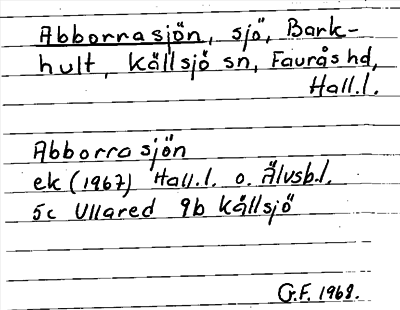 Abborrasjön, sjö, Bark-
hult, Källsjö sn, Faurås hd,
Hall.l.
Abborrasjön
ek (1967) Hall.l. o. Älvsb.l.
5c Ullared 9b Källsjö
G.F. 1968.